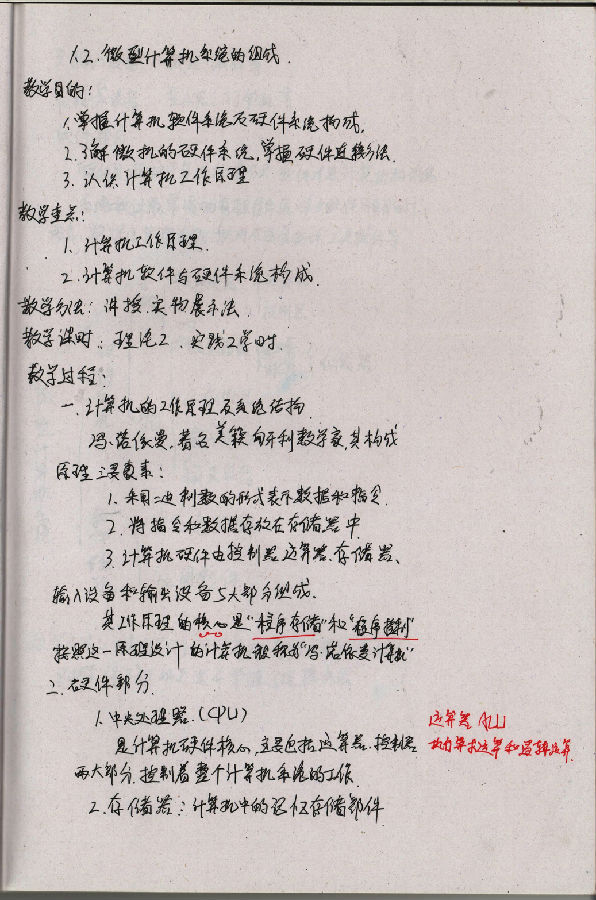 1.2.微型计算机系统的组成.
教学目的:
1.掌握计算机软件系统及硬件系统构成.
2.了解微机的硬件系统,掌握硬件连接方法.
3.认识计算机工作原理
教学重点:
1.计算机工作原理.
2.计算机软件与硬件系统构成.
教学方法:讲授.实物展示法
教学课时:理论2.实践2学时.
教学过程:
一.计算机的工作原理及系统结构.
冯.诺依曼,著名美籍匈牙利数学家,其构成
原理三要素:
1.采用二进制数的形式表示数据和指令.
2.将指令和数据存放在存储器中
3.计算机硬件由控制器.运算器.存储器、
输入设备和输出设备5大部分组成.
其工作原理的核心是"程序存储"和"程序控制"
按照这一原理设计的计算机被称为"冯.诺依曼计算机"
二.硬件部分.
1.中央处理器.(CPU)
运算器 ALU
是计算机硬件核心,主要包括运算器.控制器
执行算术运算和逻辑运算.
两大部分.控制着整个计算机系统的工作.
2.存储器:计算机中的记忆存储部件